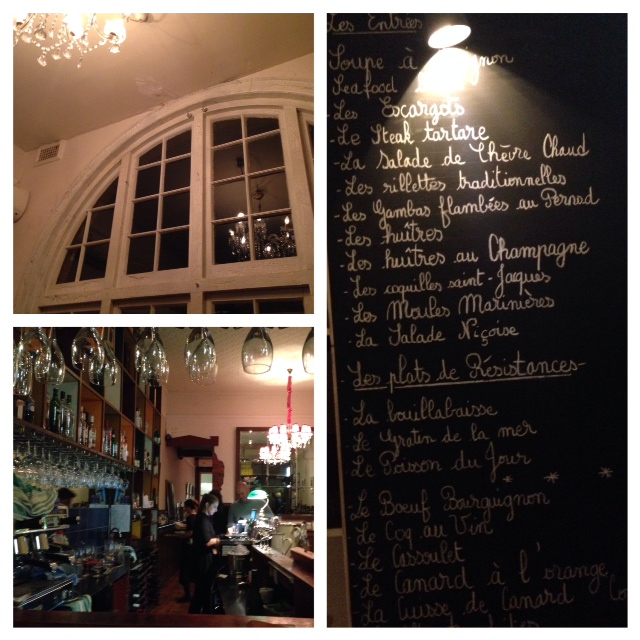 Les Entrées
Soupe à
Seafood
- Les Escargots
- Le Steak tartare
- La Salade de Chèvre Chaud
- Les rillettes traditionnelles
- Les Gambas flambées au Pernod
- Les huîtres
- Les huîtres au Champagne
- Les coquilles saint-Jaques
- Les Moules Marinières
- La Salade Niçoise
- Les plats de Résistances -
- La bouillabaisse
Le Gratin de la mer
Le Poisson du Jour
* * *
Le Boeuf Bourguignon
- Le Coq au Vin
- Le Cassoulet
- Le Canard à l'orange
- La Cuisse de Canard